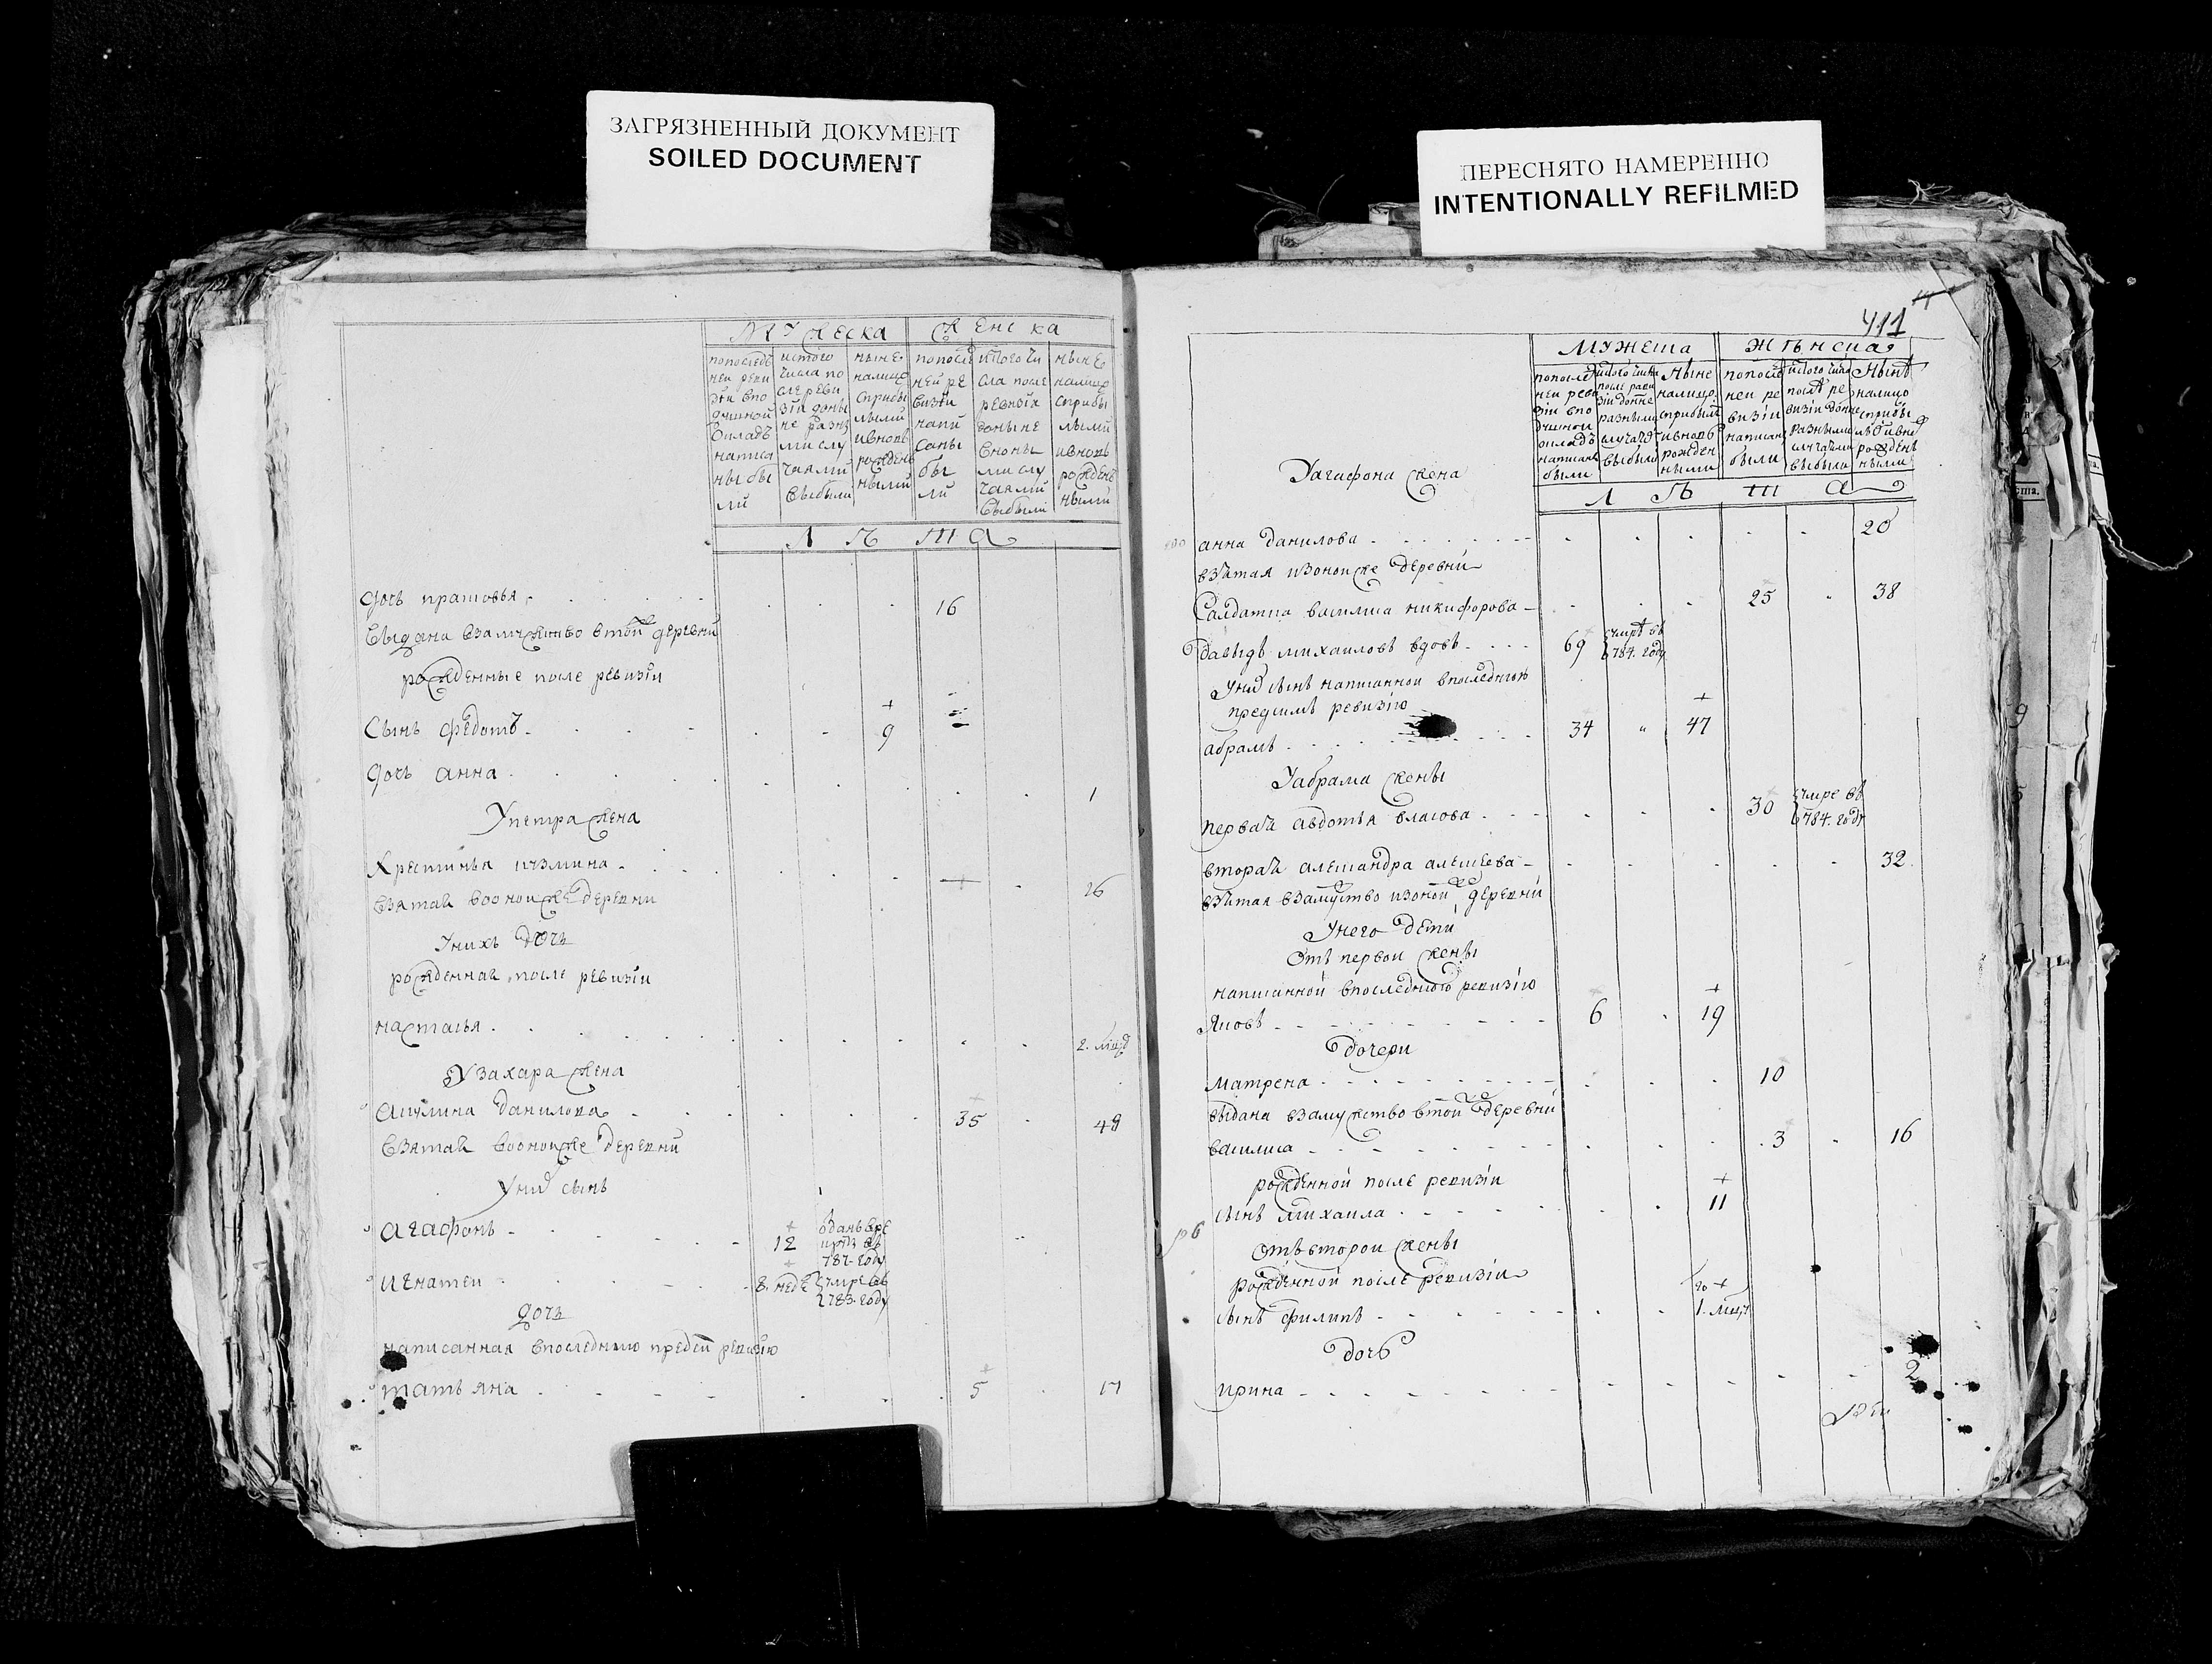 ЗАГРЯЗНЕННЫЙ ДОКУМЕНТ
SOILED DOCUMENT
ПЕРЕСНЯТО НАМЕРЕННО
INTENTIONALLY REFILMED
Мужеска Женска
попоследней ревизіи вподушной окладъ написаны были
истого числа после ревизіи доныне разными случаями выбыли
ныне налицо сприбылыми ивновь рожденными
попоследней ревизіи написаны были
истого числа после ревизіи доныне разными случаями выбыли
ныне налицо сприбылыми ивновь рожденными
Лѣта
дочь 16
выдана взамужство втой же деревни
рожденные после ревизіи
Сынъ федотъ 9
дочь анна 1
Упетра жена
Хрестинья 26
взятая воонои же деревни
Унихъ дочь
рожденная после ревизіи
настасья 2. 
Узахара жена
акулина данилова 35 48
взятая воонои же деревни
Униъ сынъ
агафонъ 12 одань врекруты въ 787 году
игнатеи 8. неде умре въ 783. году
дочь
написанная впоследнюю пред сим ревизию
татьяна 5 17
411
Мужеска Женска
попоследнеи ревизіи вподушнои окладъ написаны были
истого числа после ревизіи доныне разными случаи выбыли
Ныне налицо сприбылы ивновь рожденными
попоследнеи ревизіи написаны были
истого числа послѣ ревизіи доныне разными случаями выбыли
Нынѣ налицо сприбылыми ивновь рожденными
Уагафона жена
Лѣта
анна данилова 20
взятая изонои же деревни
Салдатка василиса никифорова 25 38
давыдъ михаиловъ вдовъ 69 умрѣ въ 784. году
Унего сынъ написаннои впоследнюю
предсимъ ревизію
абрамъ 34 " 47
Уабрама жены
первая авдотья власова 30 умре въ 784. году
вторая александра алексеева 32
взятая взамужство изонои же деревни
Унего дети
Отъ первои жены
написаннои впоследнюю ревизію
Яковъ 6 19
дочери
матрена 10
выдана взамужство втои же деревни
василиса 3 16
рожденнои после ревизіи
сынъ михаила 11
отъ второи жены
рожденнои после ревизіи
сынъ филипъ 1. 
дочь
ирина 2